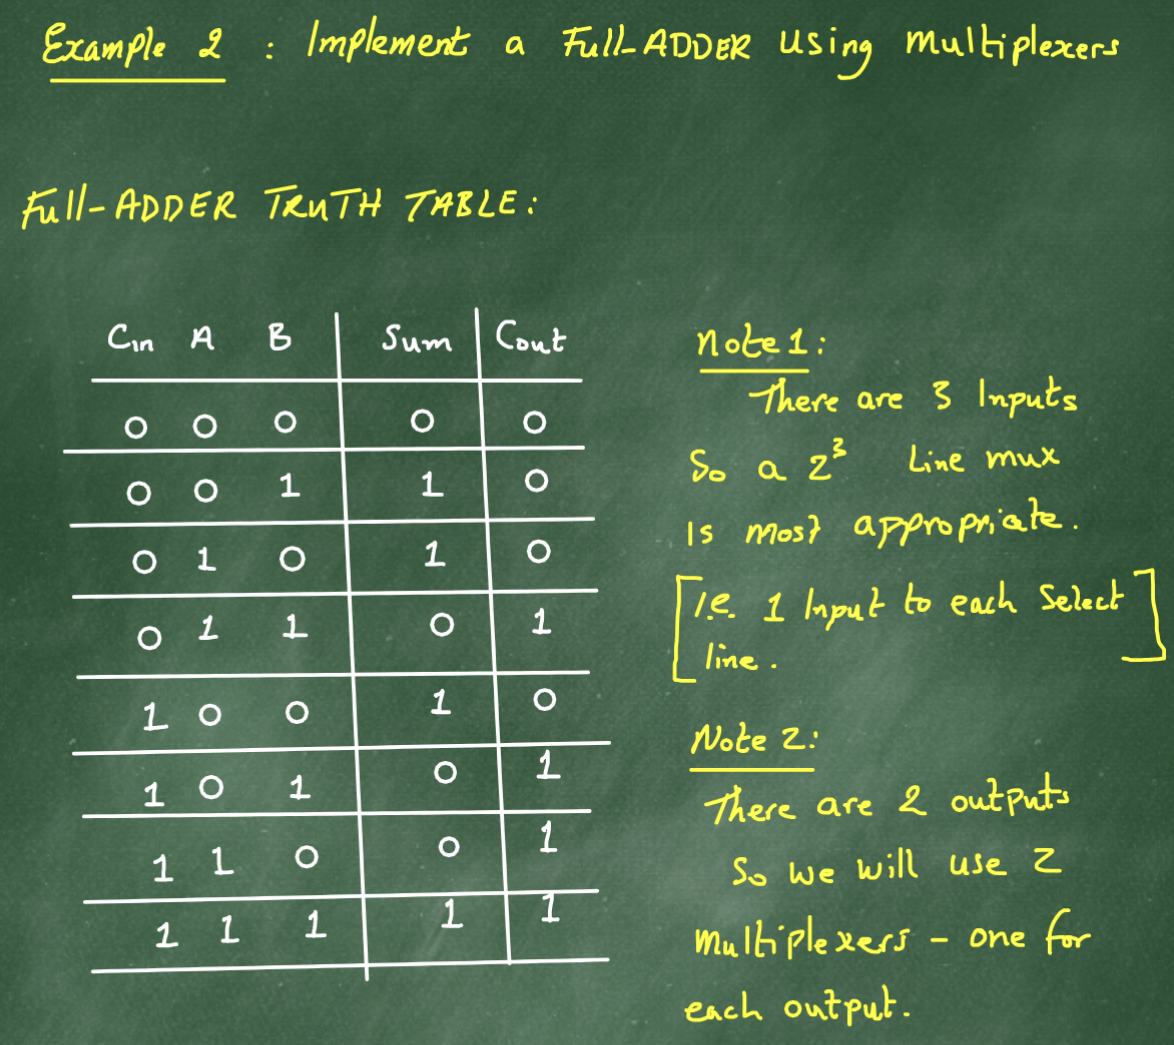 Example 2 : Implement a Full-ADDER using Multiplexers
Full-ADDER TRUTH TABLE:
Cin A B Sum Cout
0 0 0 0 0
0 0 1 1 0
0 1 0 1 0
0 1 1 0 1
1 0 0 1 0
1 0 1 0 1
1 1 0 0 1
1 1 1 1 1
Note 1:
There are 3 Inputs
So a 2³ Line mux
Is most appropriate.
[i.e. 1 Input to each Select
line.]
Note 2:
There are 2 outputs
So we will use 2
multiplexers - one for
each output.